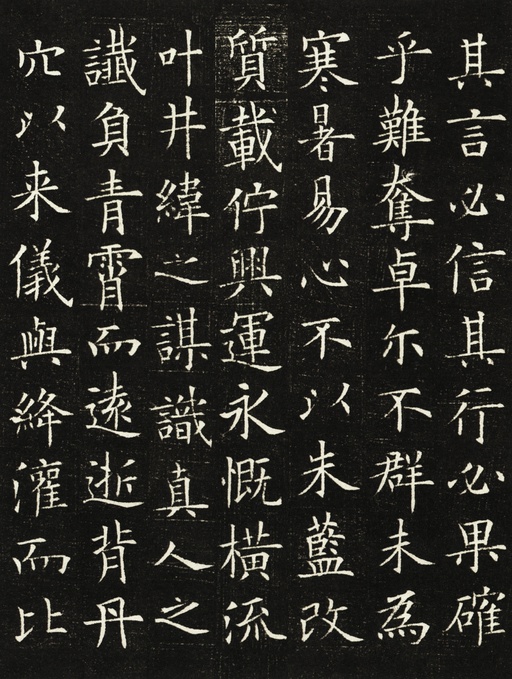 其言必信其行必果確
乎難奪卓尒不群未為
寒暑易心不以朱藍改
質載佇興運永慨橫流
叶井緯之謀識真人之
讖負青霄而遠逝背丹
穴以来儀與絳灌而比